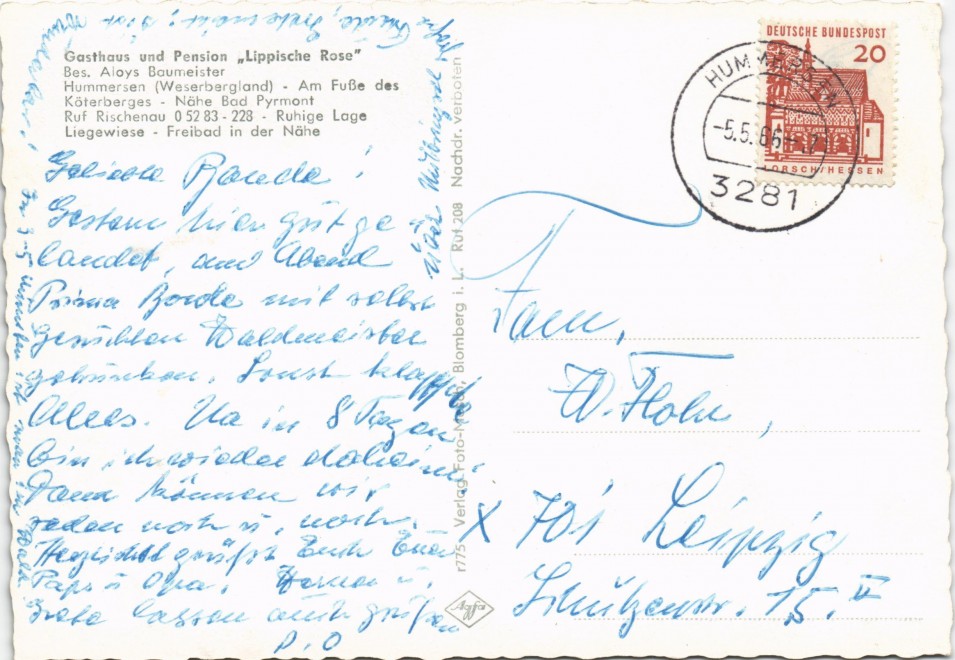 Gasthaus und Pension „Lippische Rose"
Bes. Aloys Baumeister
Hummersen (Weserbergland) - Am Fuße des
Köterberges - Nähe Bad Pyrmont
Ruf Rischenau 0 52 83 - 228 - Ruhige Lage
Liegewiese - Freibad in der Nähe
Geliebte Bande!
Gestern hier gut ge
landet, am Abend
Prima Bowle mit selbst
gesuchten Waldmeister
getrunken. Sonst klappte
Alles. Na in 8 Tagen
bin ich wieder daheim.
Dann können wir
reden noch u. noch.
Herzlichst grüßt Euch Euer
Papi u Opa. Werner u.
Grete lassen auch grüßen
D. O
im Wald.
Verlag Foto
Blomberg i. L. Rut 208 Nachdr. verboten
r775
Agfa
DEUTSCHE BUNDESPOST
20
LORSCH/HESSEN
HUMMERSEN
-5.5.66
3281
Fam.
W. Hohn,
X 701 Leipzig
Schützenstr. 15. II